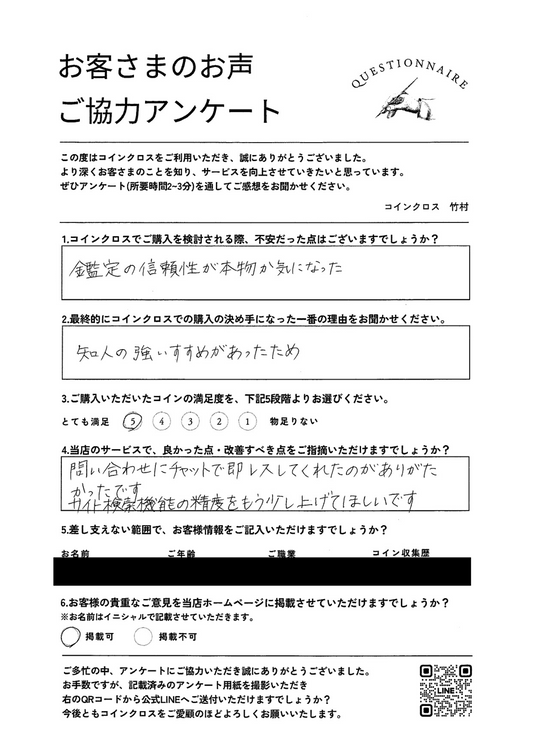 お客さまのお声
ご協力アンケート
QUESTIONNAIRE
この度はコインクロスをご利用いただき、誠にありがとうございました。
より深くお客さまのことを知り、サービスを向上させていきたいと思っています。
ぜひアンケート(所要時間2~3分)を通してご感想をお聞かせください。
コインクロス 竹村
1.コインクロスでご購入を検討される際、不安だった点はございますでしょうか？
鑑定の信頼性が本物か気になった
2.最終的にコインクロスでの購入の決め手になった一番の理由をお聞かせください。
知人の強いすすめがあったため
3.ご購入いただいたコインの満足度を、下記5段階よりお選びください。
とても満足 5 4 3 2 1 物足りない
4.当店のサービスで、良かった点・改善すべき点をご指摘いただけますでしょうか？
問い合わせにチャットで即レスしてくれたのがありがた
かったです
サイト検索機能の精度をもう少し上げてほしいです
5.差し支えない範囲で、お客様情報をご記入いただけますでしょうか？
お名前 ご年齢 ご職業 コイン収集歴
6.お客様の貴重なご意見を当店ホームページに掲載させていただけますでしょうか？
※お名前はイニシャルで記載させていただきます。
掲載可 掲載不可
ご多忙の中、アンケートにご協力いただき誠にありがとうございました。
お手数ですが、記載済みのアンケート用紙を撮影いただき
右のQRコードから公式LINEへご送付いただけますでしょうか？
今後ともコインクロスをご愛顧のほどよろしくお願いいたします。
LINE